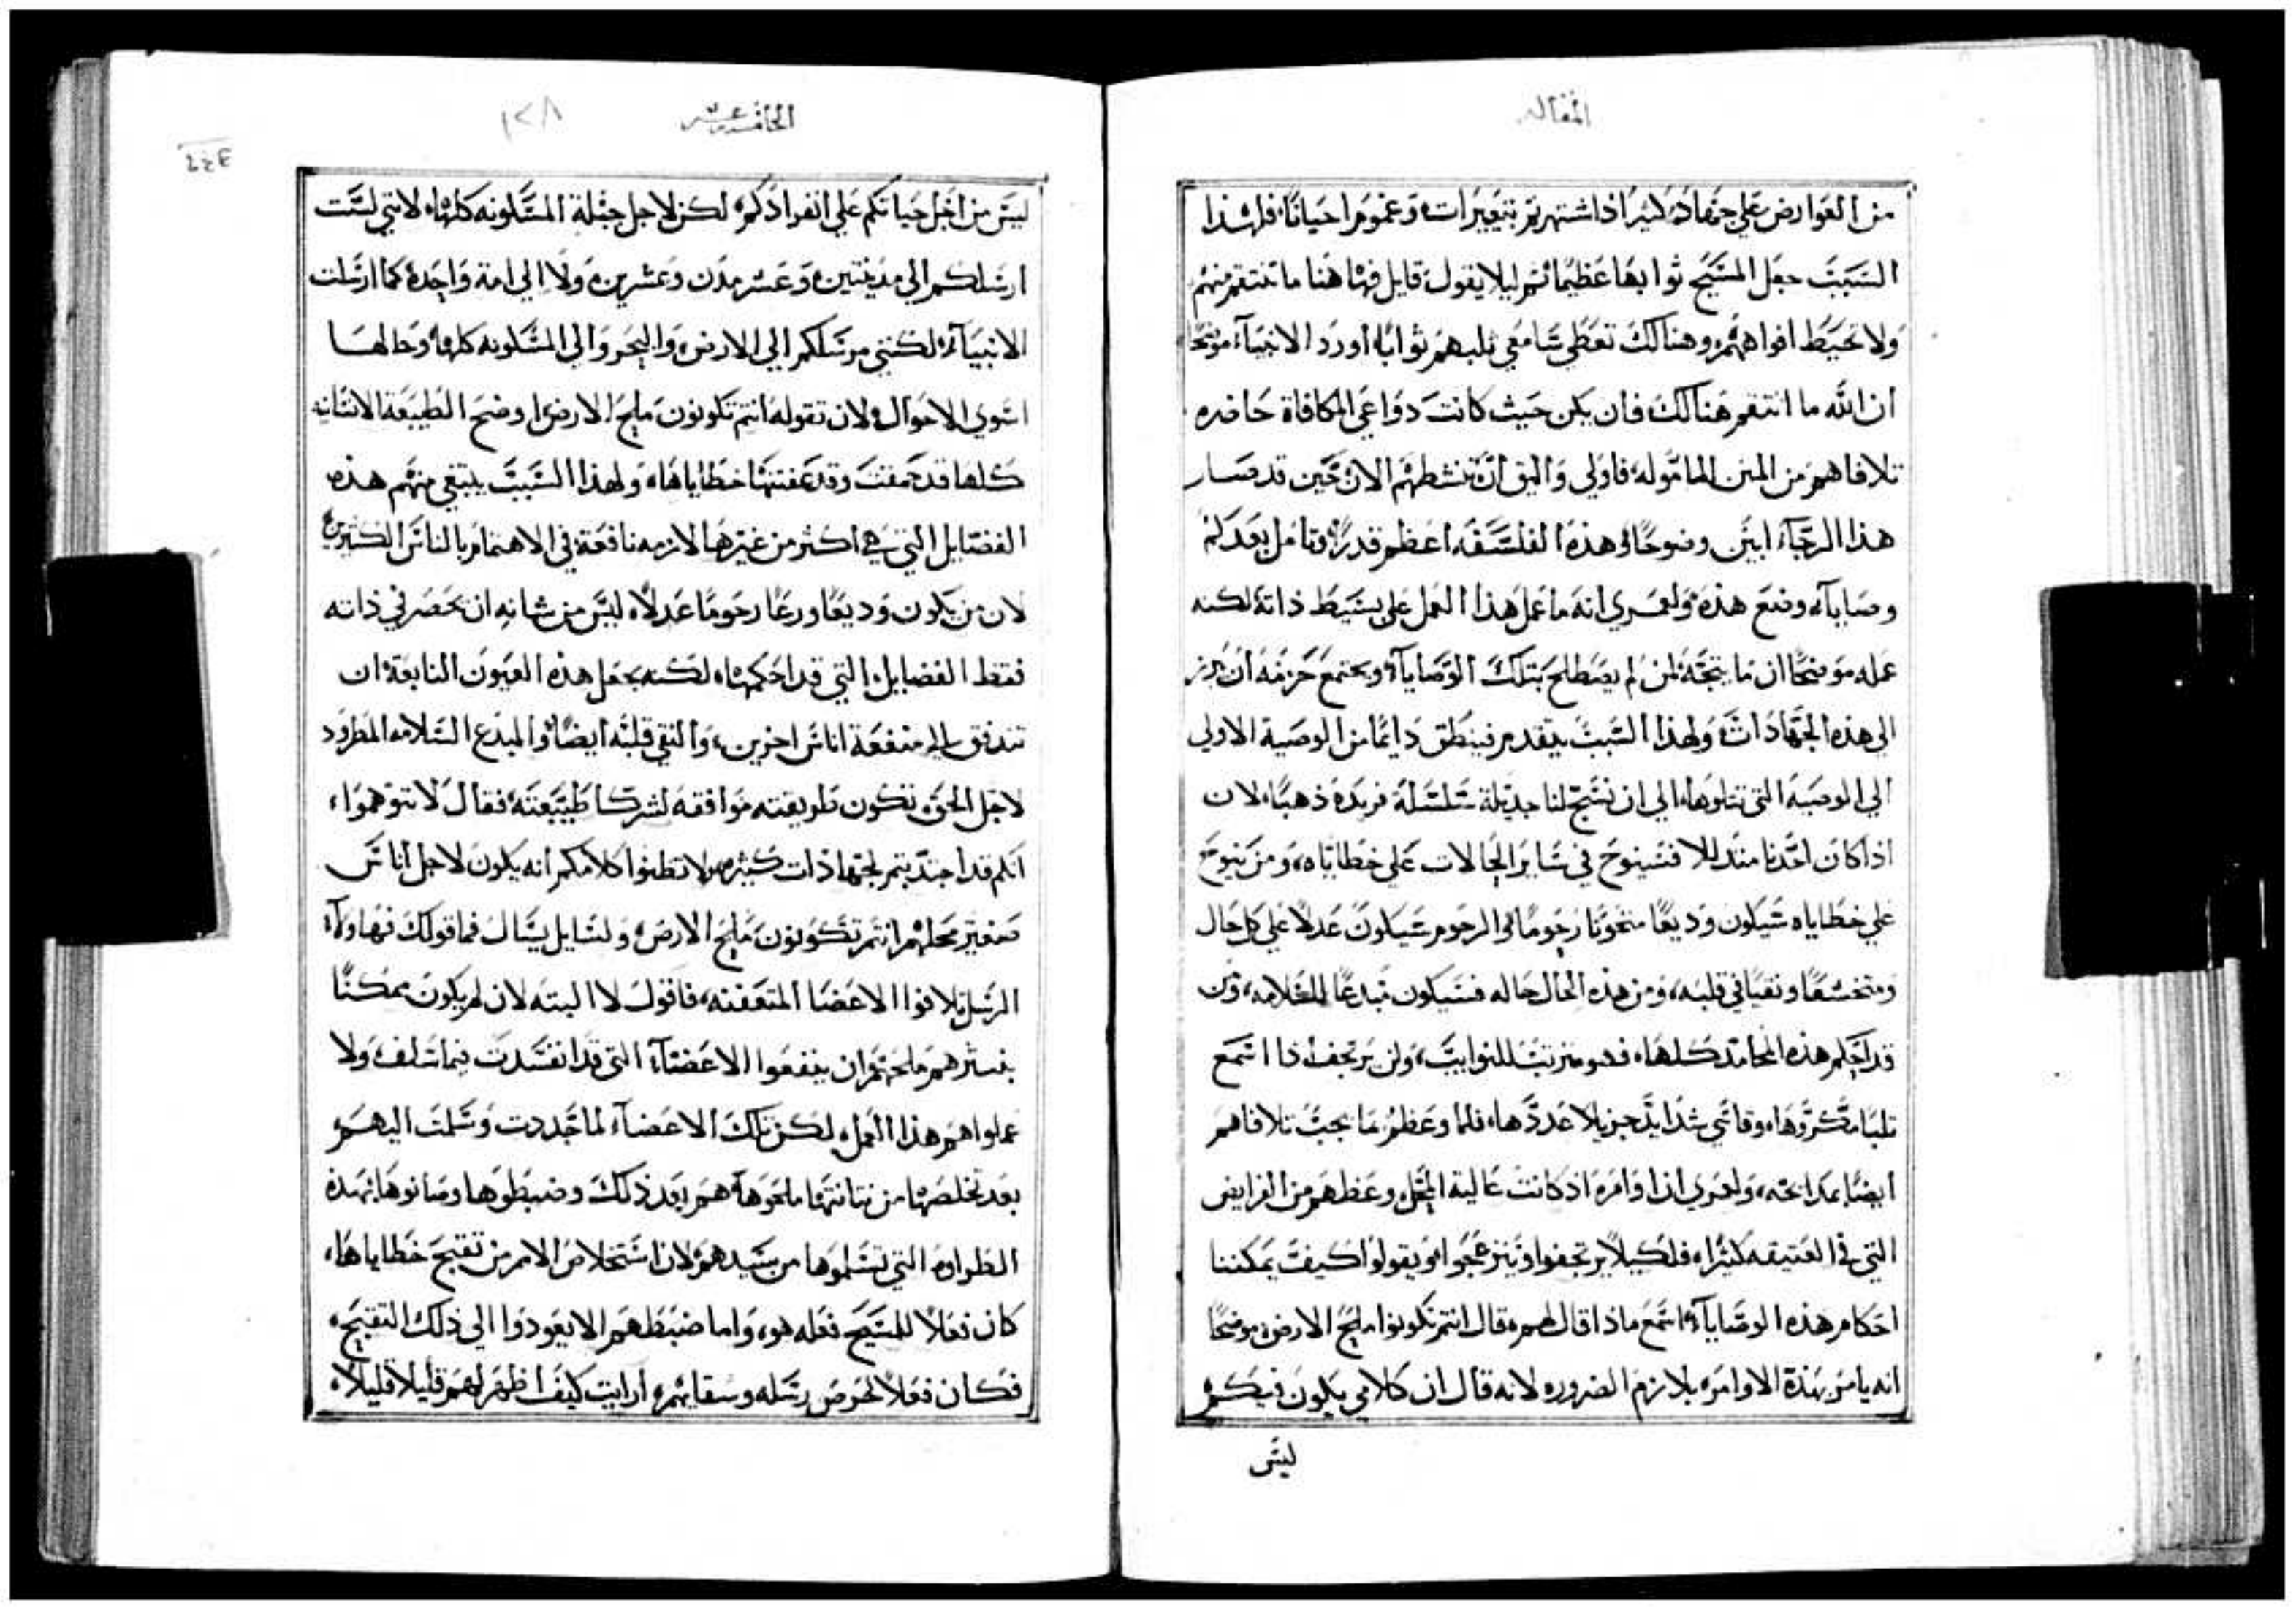 المقاله
من العوارض على جهاده كثيرا اذا اشتهرتم بتعييرات وغموم احيانا، فلهذا
السبب جعل المسيح ثوابها عظيما ثم ليلا يقول قايل فها هنا ما تنتقم منهم
ولا تخيط افواههم، وهنالك تعطي سامعي ثلبهم ثوابا، اورد الانبياء موضحا
ان الله ما انتقم هنالك فان يكن حيث كانت دواعي المكافاة حاضره
تلافاهم من المنن المامولة، فاولي واليق ان ننشطهم الان حين قد صار
هذا الرجاء ابين وضوحا، وهذه الفلسفه اعظم قدرا، وتامل بعد كم
وصاياه وضع هذه ولعمري انه ما عمل هذا العمل على بسيط ذاته لكنه
عمله موضحا ان ما يتجه لمن لم يصطلح بتلك الوصايا ويجتمع حزمه ان يبرز
الي هذه الجهادات، ولهذا السبب يتقدم فينطق دايما من الوصية الاولي
الي الوصية التي تتلوها، الي ان نسج لنا جديلة سلسلة فريدة ذهبا، لان
اذا كان احدنا متذللا فسينوح في ساير الحالات علي خطاياه، ومن ينوح
علي خطاياه سيكون وديعا رحوما والرحوم سيكون عدلا علي كل حال
ومتخشعا ونقيا في قلبه، ومن هذه الحال حاله فسيكون مبدعا للسلامه، ومن
قد احكم هذه المحامد كلها، فهو مترتب للنوايب، ولن يرتجف اذا استمع
ثلبا مكروها، وقاسي شدايد جزيلا عددها، فلما وعظهم ما يجب تلافاهم
ايضا بمدايحه، ولعمري ان اوامره اذ كانت عالية المحل وعظهم من الفرايض
التي في العتيقه كثيرا، فلكيلا يرتجفوا وينزعجوا او يقولوا كيف يمكننا
احكام هذه الوصايا، استمع ماذا قال لهم، قال انتم تكونوا ملح الارض، موضحا
انه يامر بهذه الاوامر، بلازم الضروره لانه قال ان كلامي يكون فيكم
ليس
الخامسه عشر ١٢٨
ليس من اجل حياتكم علي انفرادكم، لكن لاجل جملة المسكونه كلها، لانني لست
ارسلكم الي مدينتين وعشر مدن وعشرين ولا الي امة واحدة كما ارسلت
الانبياء، لكنني مرسلكم الي الارض، والبحر والي المسكونه كلها، وحالها
اسوي الاحوال، ولان تقوله انتم تكونون ملح الارض، اوضح الطبيعة الانسانيه
كلها قد حمقت وقد عفنتها خطاياها، ولهذا السبب يبتغي منهم هذه
الفضايل التي هي اكثر من غيرها لازمه نافعة في الاهتمام بالناس الكثيرين
لان من يكون وديعا ورعا رحوما عدلا، ليس من شانه ان تحصر في ذاته
فقط الفضايل التي قد احكمها، لكنه يجعل هذه العيون النابعة ان
تتدفق الي منفعة اناس اخرين، والنقي قلبه ايضا والمبدع السلامه المطرود
لاجل الحق، تكون طريقته موافقه لشركا طبيعته، فقال لا تتوهموا،
انكم قد اجتذبتم لجهادات كثيره، ولا تظنوا كلامكم انه يكون لاجل اناس
صغير محلهم، انتم تكونون ملح الارض، ولسايل يسال فما قولك فهاولاء
الرسل تلافوا الاعضا المتعفنه، فاقول لا البته لان لم يكون ممكنا
بنشرهم ملحهم ان ينفعوا الاعضاء التي قد انفسدت فيما سلف، ولا
عملوا هم هذا العمل، لكن تلك الاعضاء لما تجددت وسلمت اليهم،
بعد تخلصها من نتانتها ملحوها هم بعد ذلك وضبطوها وصانوها بهذه
الطراوه التي تسلموها من سيدهم، لان استخلاص الامر من تقبيح خطاياها،
كان فعلا للمسيح فعله هو، واما ضبطهم الا يعودوا الي ذلك التقبيح،
فكان فعلا لحرص رسله وسقايهم، ارايت كيف اظهر لهم قليلا قليلا،